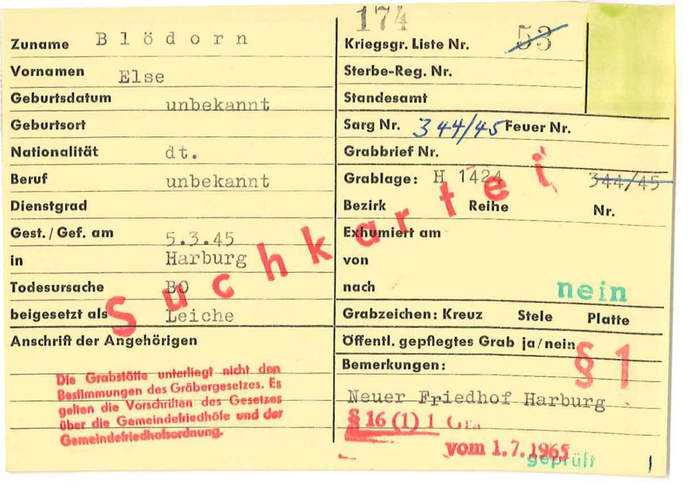 174
Zuname B l ö d o r n
Kriegsgr. Liste Nr. 53
Vornamen Else
Sterbe-Reg. Nr.
Geburtsdatum unbekannt
Standesamt
Geburtsort
Sarg Nr. 344/45 Feuer Nr.
Nationalität dt.
Grabbrief Nr.
Beruf unbekannt
Grablage: H 1424 344/45
Dienstgrad
Bezirk Reihe Nr.
Gest. / Gef. am 5.3.45
Exhumiert am
in Harburg
von
Todesursache BO
nach
nein
beigesetzt als Leiche
Grabzeichen: Kreuz Stele Platte
Suchkartei
Anschrift der Angehörigen
Öffentl. gepflegtes Grab ja/nein
§ 1
Bemerkungen:
Die Grabstätte unterliegt nicht den
Bestimmungen des Gräbergesetzes. Es
gelten die Vorschriften des Gesetzes
über die Gemeindefriedhöfe und der
Gemeindefriedhofsordnung.
Neuer Friedhof Harburg
§ 16 (1) 1
vom 1.7.1965
geprüft